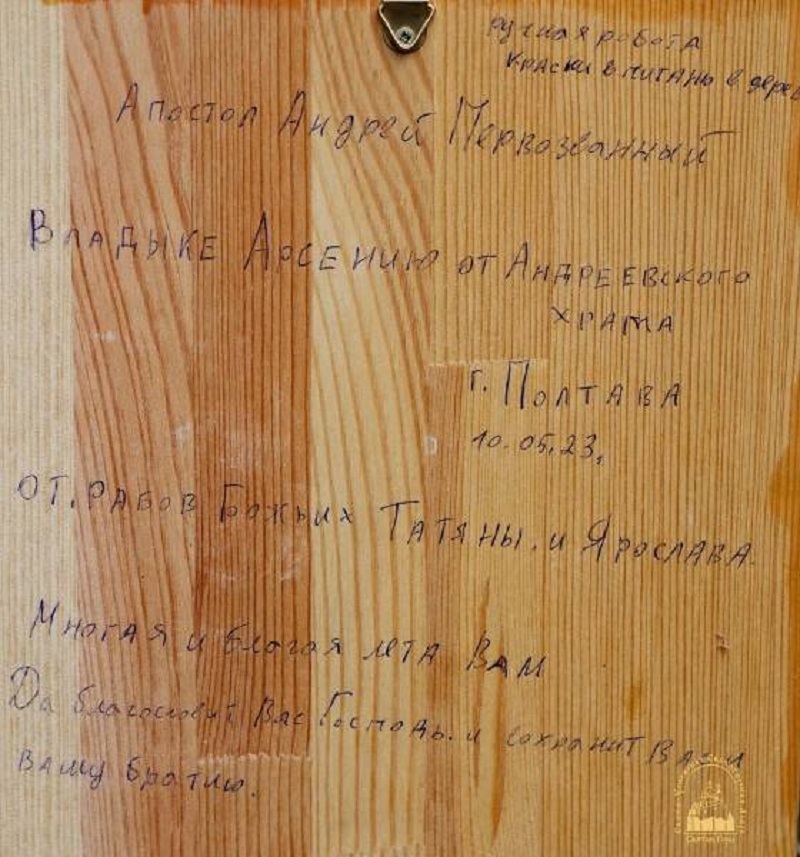 ручная робота
краски впитано в дерев
Апостол Андрей Первозванный
Владыке Арсению от Андреевского
храма
г. Полтава
10.05.23,
от. рабов Божьих Татяны. и Ярослава.
Многая и благая лета Вам
Да благословит Вас Господь. и сохранит Вас и
вашу братию.